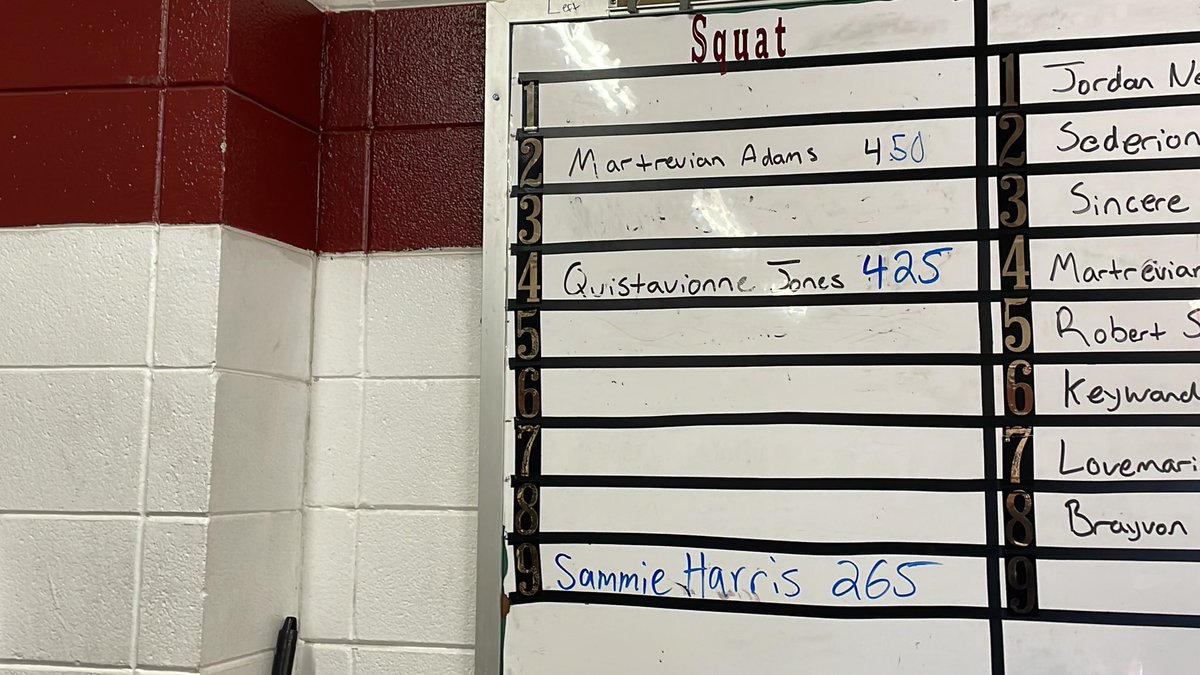 Left
Squat
1
2 Martrevian Adams 450
3
4 Quistavionne Jones 425
5
6
7
8
9 Sammie Harris 265
1 Jordan
2 Sederion
3 Sincere
4 Martrevian
5 Robert S
6 Keywand
7 Lovemari
8 Brayvon
9